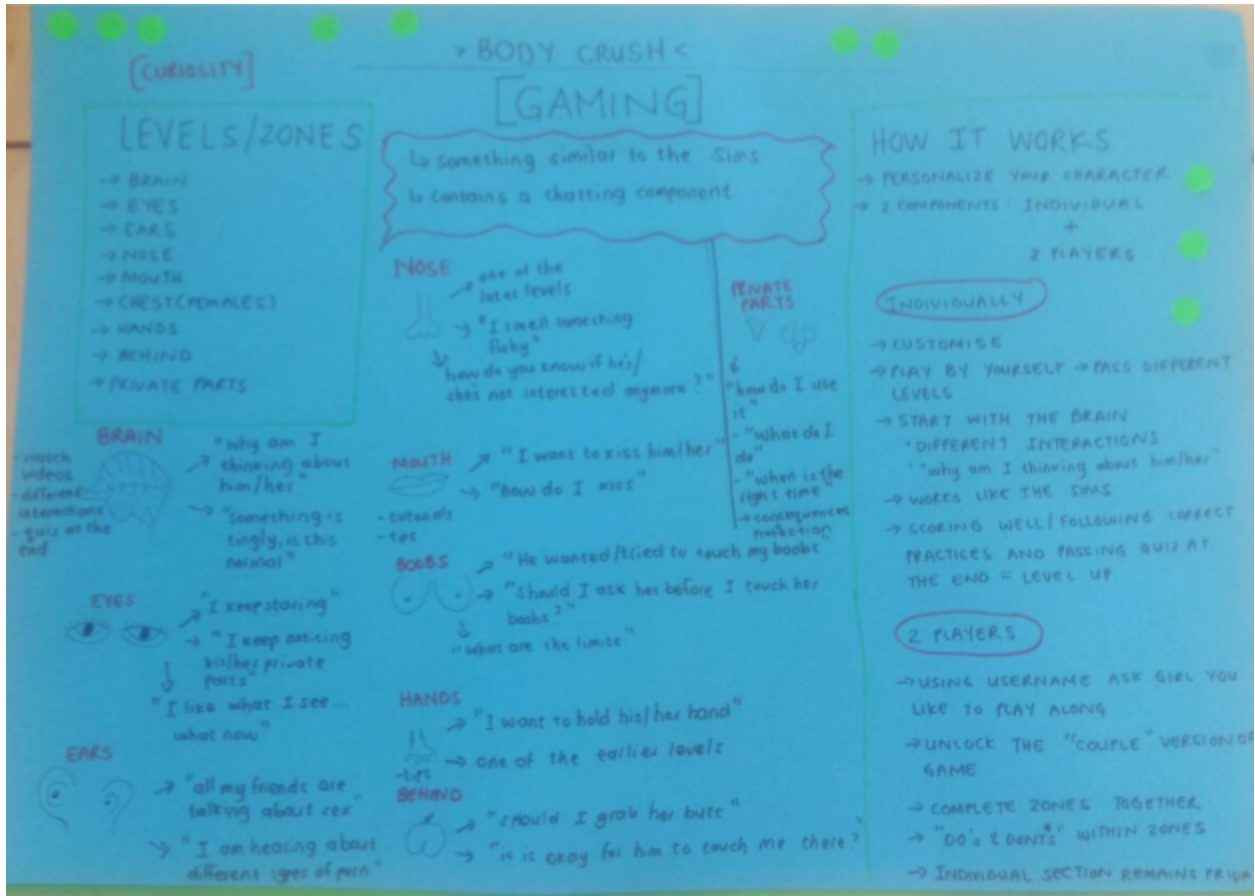 > BODY CRUSH <
[CURIOSITY]
[GAMING]
LEVELS/ZONES
→ BRAIN
→ EYES
→ EARS
→ NOSE
→ MOUTH
→ CHEST(FEMALES)
→ HANDS
→ BEHIND
→ PRIVATE PARTS
↳ something similar to the Sims
↳ contains a chatting component
BRAIN
- watch
videos
- different
interactions
- quiz at the
end
→ "why am I
thinking about
him/her"
→ "something is
tingly, is this
normal"
EYES
→ "I keep staring"
→ "I keep noticing
his/her private
parts"
"I like what I see...
what now"
EARS
→ "all my friends are
talking about sex"
→ "I am hearing about
different types of porn"
NOSE
→ one of the
later levels
→ "I smell something
fishy"
how do you know if he's/
she's not interested anymore?"
MOUTH
→ "I want to kiss him/her"
→ "how do I kiss"
- tutorials
- tips
BOOBS
→ "He wanted/tried to touch my boobs"
→ "Should I ask her before I touch her
boobs?"
"what are the limits"
HANDS
→ "I want to hold his/her hand"
→ one of the earlier levels
- tips
BEHIND
→ "should I grab her butt"
→ "is it okay for him to touch me there?"
PRIVATE
PARTS
"how do I use
it"
- "what do I
do"
- "when is the
right time"
→ consequences
protection
HOW IT WORKS
→ PERSONALIZE YOUR CHARACTER
→ 2 COMPONENTS: INDIVIDUAL
+
2 PLAYERS
INDIVIDUALLY
→ CUSTOMISE
→ PLAY BY YOURSELF → PASS DIFFERENT
LEVELS
→ START WITH THE BRAIN
• DIFFERENT INTERACTIONS
• "why am I thinking about him/her"
→ WORKS LIKE THE SIMS
→ SCORING WELL/FOLLOWING CORRECT
PRACTICES AND PASSING QUIZ AT
THE END = LEVEL UP
2 PLAYERS
→ USING USERNAME ASK GIRL YOU
LIKE TO PLAY ALONG
→ UNLOCK THE "COUPLE" VERSION OF
GAME
→ COMPLETE ZONES TOGETHER
→ "DO's & DONT's" WITHIN ZONES
→ INDIVIDUAL SECTION REMAINS PRIVA